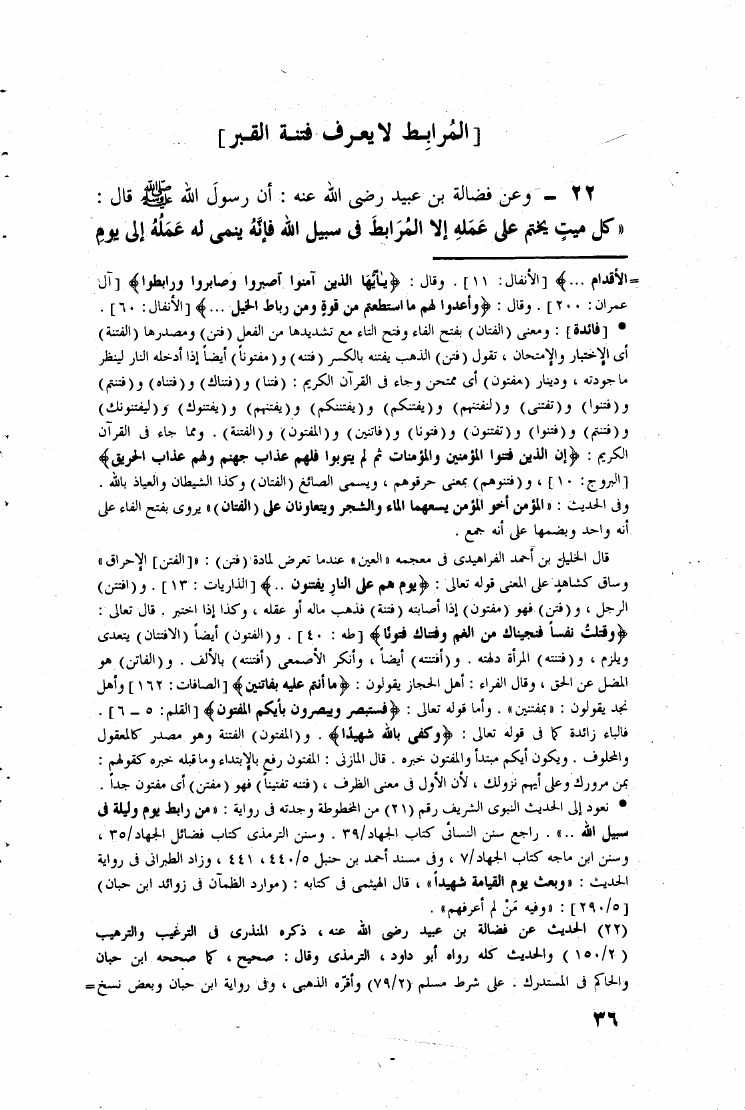 [ المُرابِط لا يعرف فتنة القبر ]
٢٢ ــ وعن فضالة بن عبيد رضى الله عنه : أن رسولَ الله ﷺ قال :
« كل ميتٍ يختم على عَمَلهِ إلا المُرَابطَ فى سبيل الله فإنَّهُ ينمى له عَمَلُهُ إلى يومِ
=الأقدام ...﴾ [الأنفال: ١١] . وقال : ﴿يـٰأيُّها الذين آمنوا آصبروا وصابروا ورابطوا﴾ [آل
عمران: ٢٠٠] . وقال : ﴿وأعدوا لهم ما استطعتم من قوةٍ ومن رباط الخيل ...﴾ [الأنفال: ٦٠] .
• [فائدة] : ومعنى (الفتان) بفتح الفاء وفتح التاء مع تشديدها من الفعل (فتن) ومصدرها (الفتنة)
أى الإختبار والإمتحان ، تقول (فتن) الذهب يفتنه بالكسر (فتنه) و(مفتوناً) أيضاً إذا أدخله النار لينظر
ما جودته ، ودينار (مفتون) أى ممتحن وجاء فى القرآن الكريم : (فتنا) و(فتناك) و(فتناه) و(فتنتم)
و(فتنوا) و(تفتنى) و(لنفتنهم) و(يفتنكم) و(يفتننكم) و(يفتنهم) و(يفتنوك) و(ليفتنونك)
و(فتنتم) و(فتنوا) و(تفتنون) و(فتونا) و(فاتنين) و(المفتون) و(الفتنة) . ومما جاء فى القرآن
الكريم : ﴿إن الذين فتنوا المؤمنين والمؤمنات ثم لم يتوبوا فلهم عذاب جهنم ولهم عذاب الحريق﴾
[البروج: ١٠] ، و(فتنوهم) بمعنى حرقوهم ، ويسمى الصائغ (الفتان) وكذا الشيطان والعياذ بالله .
وفى الحديث : «المؤمن أخو المؤمن يسعهما الماء والشجر ويتعاونان على (الفتان)» يروى بفتح الفاء على
أنه واحد وبضمها على أنه جمع .
قال الخليل بن أحمد الفراهيدى فى معجمه «العين» عندما تعرض لمادة (فتن) : «[الفتن] الإحراق»
وساق كشاهدٍ على المعنى قوله تعالى : ﴿يوم هم على النار يفتنون ..﴾ [الذاريات : ١٣] . و(افتتن)
الرجل ، و(فتن) فهو (مفتون) إذا أصابته (فتنة) فذهب ماله أو عقله ، وكذا إذا اختبر . قال تعالى :
﴿وقتلتُ نفساً فنجيناك من الغم وفتناك فتونًا﴾ [طه : ٤٠] . و(الفتون) أيضاً (الافتتان) يتعدى
ويلزم ، و(فتنته) المرأة دلهته . و(أفتنته) أيضاً ، وأنكر الأصمعى (أفتنته) بالألف . و(الفاتن) هو
المضل عن الحق ، وقال الفراء : أهل الحجاز يقولون : ﴿ما أنتم عليه بفاتنين﴾ [الصافات: ١٦٢] وأهل
نجد يقولون : «بمفتنين» . وأما قوله تعالى : ﴿فستبصر ويبصرون بأيكم المفتون﴾ [القلم: ٥ ــ ٦] .
فالباء زائدة كما فى قوله تعالى : ﴿وكفى بالله شهيدًا﴾ . و(المفتون) الفتنة وهو مصدر كالمعقول
والمحلوف . ويكون أيكم مبتدأ والمفتون خبره . قال المازنى : المفتون رفع بالإبتداء وما قبله خبره كقولهم :
بمن مرورك وعلى أيهم نزولك ، لأن الأول فى معنى الظرف ، (فتنه تفتيناً) فهو (مفتن) أى مفتون جداً .
• نعود إلى الحديث النبوى الشريف رقم (٢١) من المخطوطة وجدته فى رواية : «من رابط يوم وليلة فى
سبيل الله ..» . راجع سنن النسائى كتاب الجهاد/٣٩ . وسنن الترمذى كتاب فضائل الجهاد/٣٥ ،
وسنن ابن ماجه كتاب الجهاد/٧ ، وفى مسند أحمد بن حنبل ٤٤٠/٥ ، ٤٤١ ، وزاد الطبرانى فى رواية
الحديث : «وبعث يوم القيامة شهيداً» ، قال الهيثمى فى كتابه : (موارد الظمآن فى زوائد ابن حبان)
[٢٩٠/٥] : «وفيه مَنْ لم أعرفهم» .
(٢٢) الحديث عن فضالة بن عبيد رضى الله عنه ، ذكره المنذرى فى الترغيب والترهيب
(١٥٠/٢) والحديث كله رواه أبو داود ، الترمذى وقال : صحيح ، كما صححه ابن حبان
والحاكم فى المستدرك . على شرط مسلم (٧٩/٢) وأقرّه الذهبى ، وفى رواية ابن حبان وبعض نسخ=
٣٦